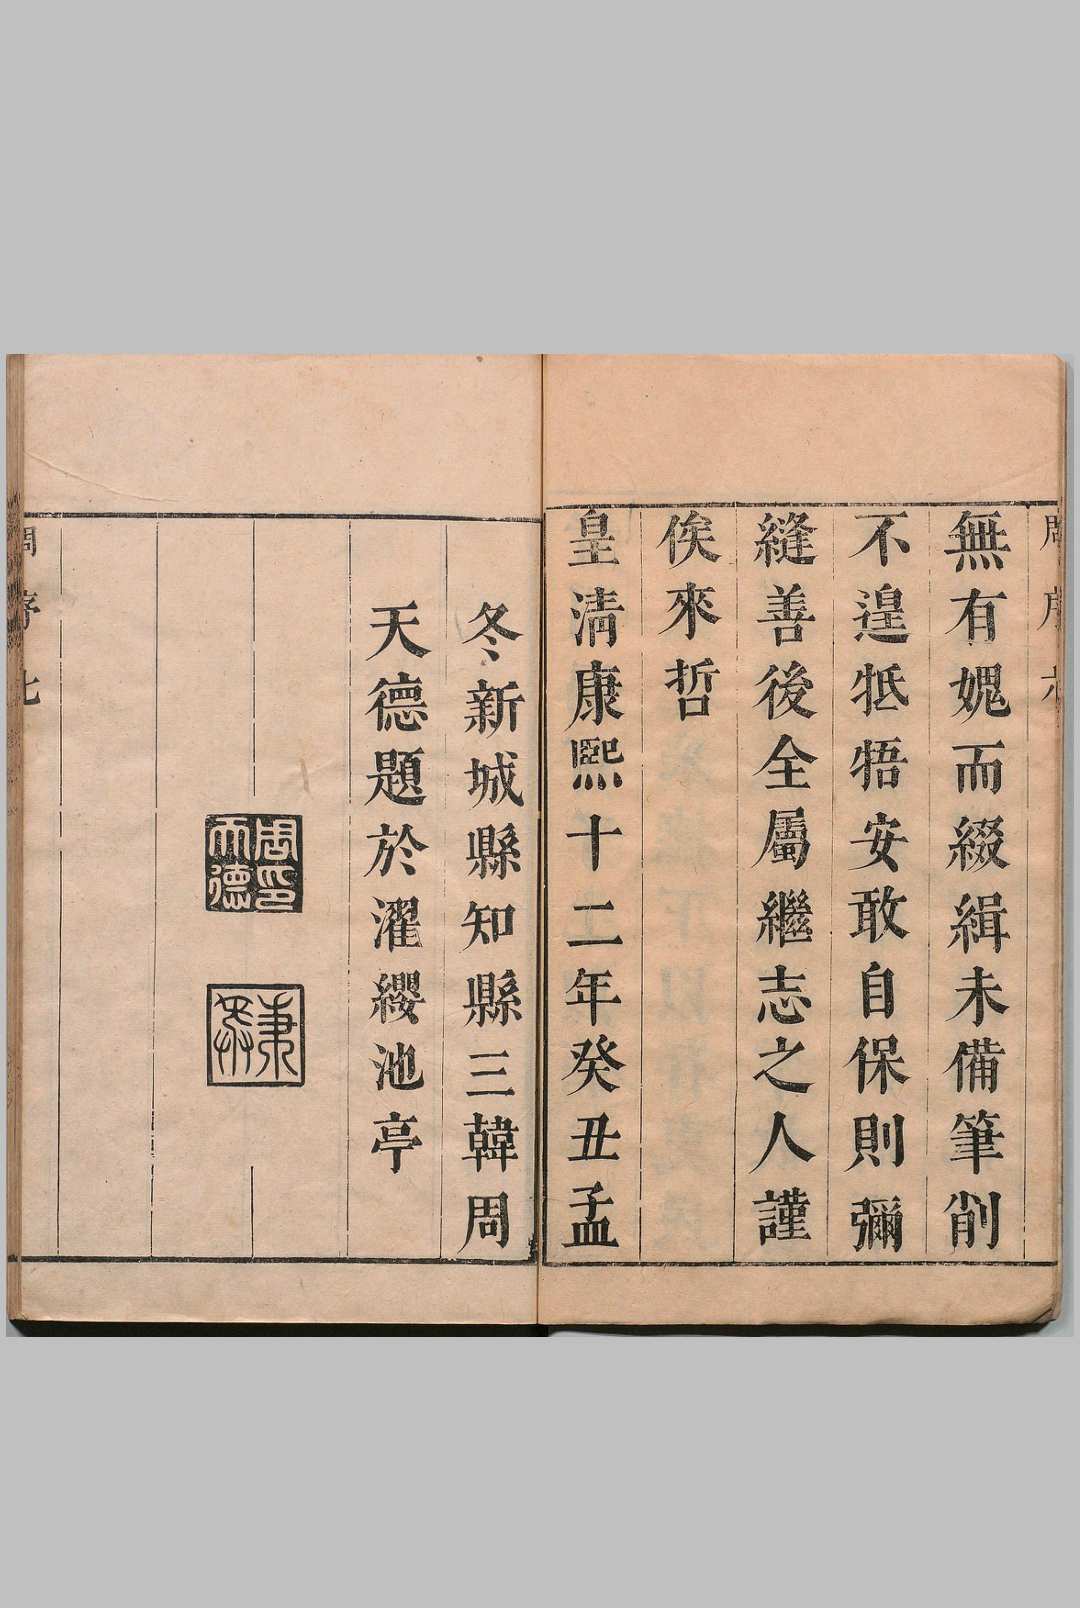 周序六
無有媿而綴緝未備筆削
不遑牴牾安敢自保則彌
縫善後全屬繼志之人謹
俟來哲
皇清康熙十二年癸丑孟
冬新城縣知縣三韓周
天德題於濯纓池亭
周印
天德
周序七